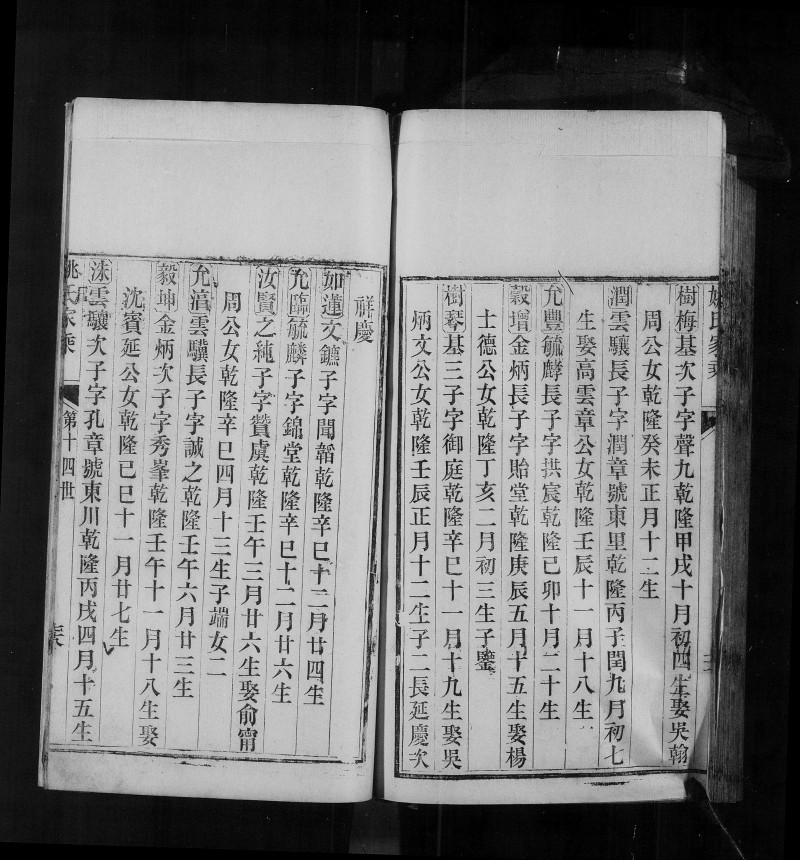 姚氏家乘
樹梅基次子字聲九乾隆甲戌十月初四生娶吳翰
周公女乾隆癸未正月十二生
潤雲驤長子字潤章號東里乾隆丙子閏九月初七
生娶高雲章公女乾隆壬辰十一月十八生
允豐毓麟長子字拱宸乾隆己卯十月二十生
榖增金炳長子字貽堂乾隆庚辰五月十五生娶楊
士德公女乾隆丁亥二月初三生子鑒
樹琴基三子字御庭乾隆辛巳十一月十九生娶吳
炳文公女乾隆壬辰正月十二生子二長延慶次
祥慶
如蓮文鑣子字聞韜乾隆辛巳十二月廿四生
允臨毓麟子字錦堂乾隆辛巳十二月廿六生
汝賢之純子字贊虞乾隆壬午三月廿六生娶俞甯
周公女乾隆辛巳四月十三生子端女二
允濇雲驥長子字誠之乾隆壬午六月廿三生
毅坤金炳次子字秀峯乾隆壬午十一月十八生娶
沈賓延公女乾隆己巳十一月廿七生
洙雲驤次子字孔章號東川乾隆丙戌四月十五生
姚氏家乘
第十四世